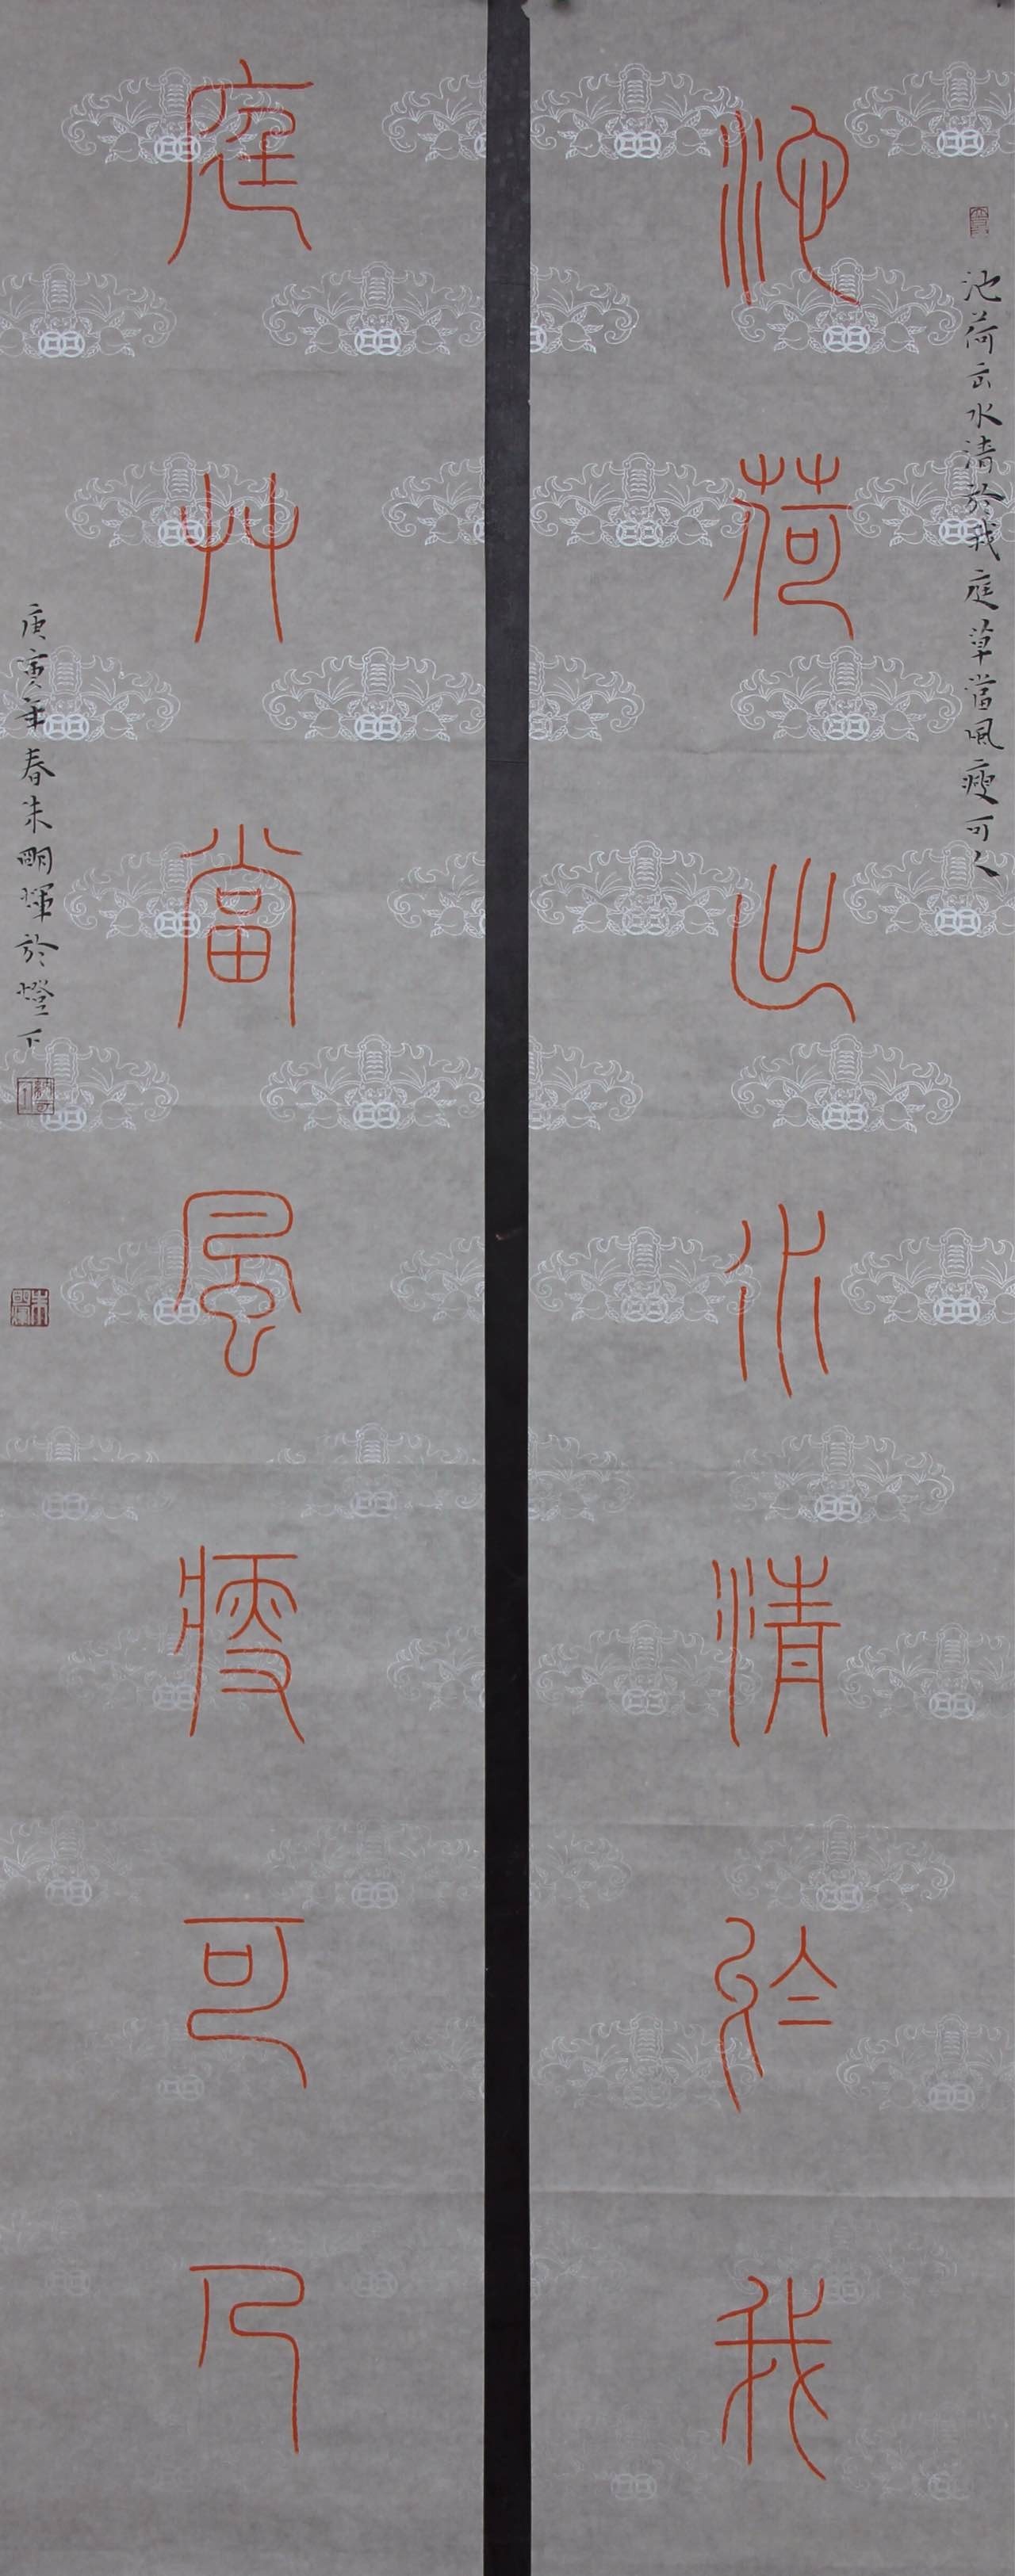 池荷出水清於我庭草當風瘦可人
池荷出水清於我
庭艸當風瘦可人
庚寅年春朱明輝於燈下